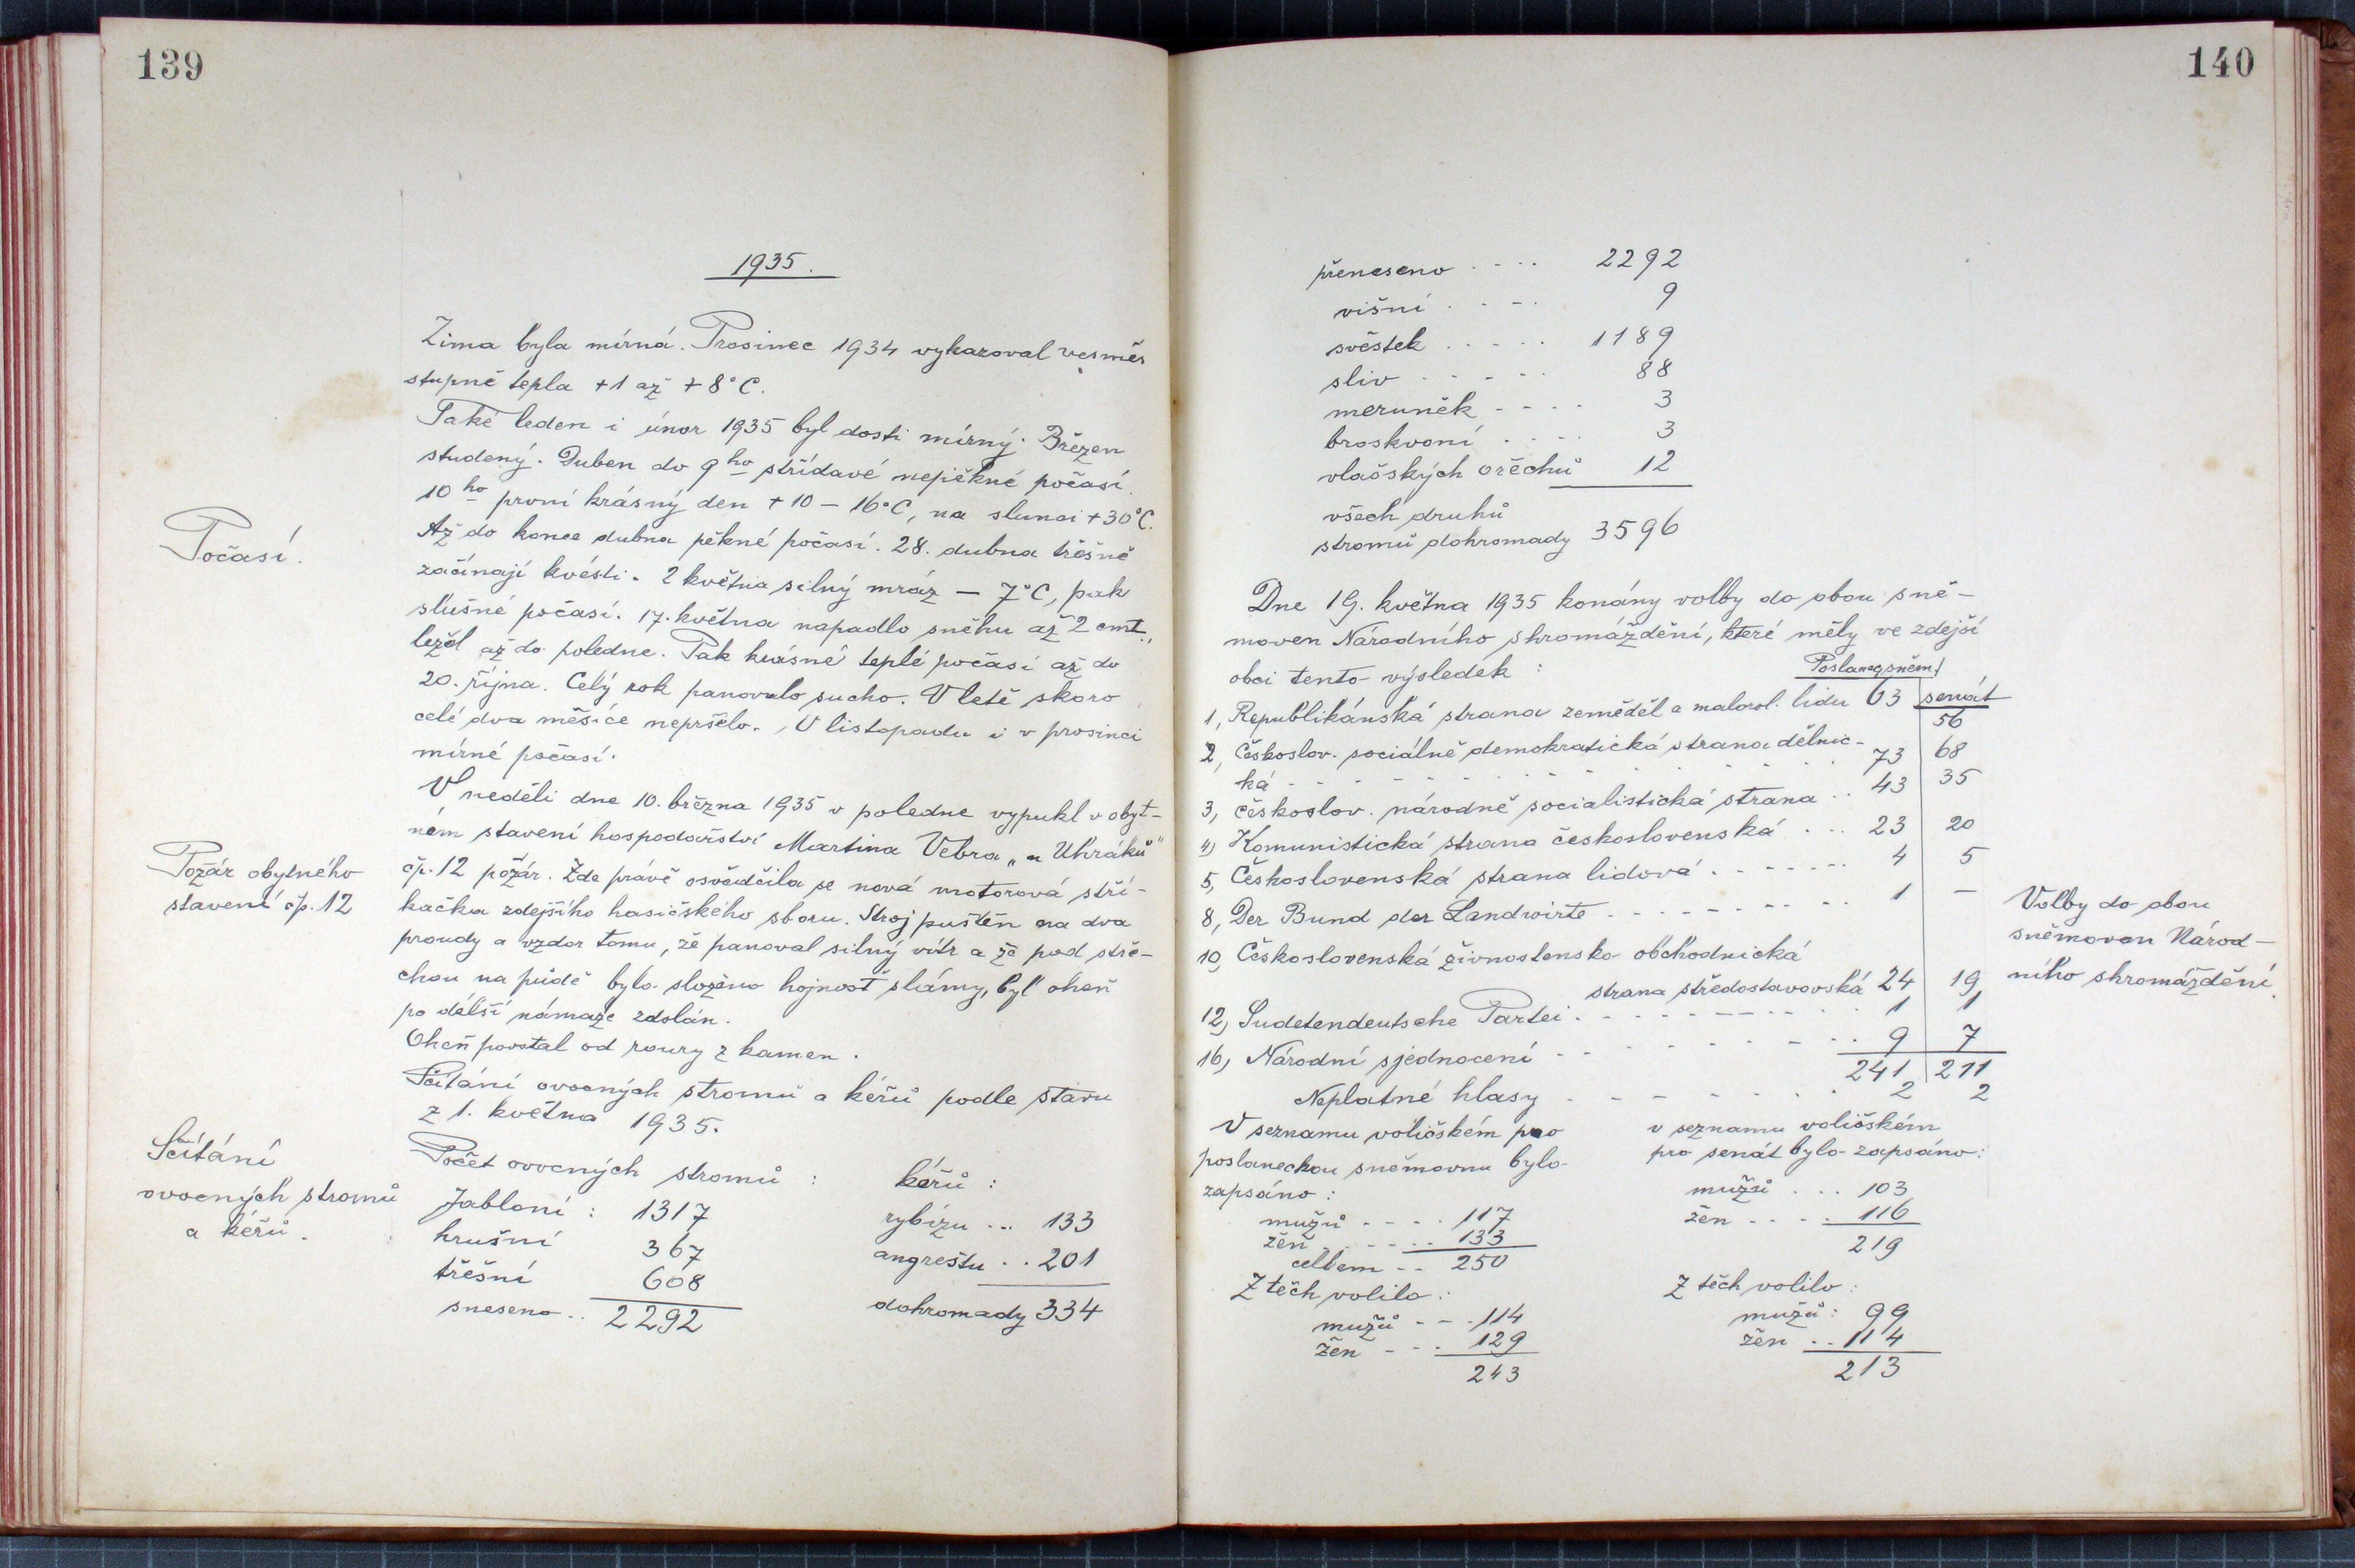 139
1935.
Zima byla mírná. Prosinec 1934 vykazoval vesměs
stupně tepla +1 až +8°C.
Také leden i únor 1935 byl dosti mírný. Březen
studený. Duben do 9ho střídavé nepěkné počasí.
10ho první krásný den +10 – 16°C, na slunci +30°C.
Až do konce dubna pěkné počasí. 28. dubna třešně
začínají kvésti. 2 května silný mráz – 7°C, pak
slušné počasí. 17. května napadlo sněhu až 2 cmt.,
ležel až do poledne. Pak krásné teplé počasí až do
20. října. Celý rok panovalo sucho. V letě skoro
celé dva měsíce nepršelo. V listopadu i v prosinci
mírné počasí.
Počasí.
V neděli dne 10. března 1935 v poledne vypukl v obyt-
ném stavení hospodářství Martina Vebra „u Uhráků"
čp. 12 požár. Zde právě osvědčila se nová motorová stří-
kačka zdejšího hasičského sboru. Stroj puštěn na dva
proudy a vzdor tomu, že panoval silný vítr a že pod stře-
chou na půdě bylo složeno hojnost slámy, byl oheň
po delší námaze zdolán.
Oheň povstal od roury z kamen.
Požár obytného
stavení čp. 12
Sčítání ovocných stromů a kéřů podle stavu
z 1. května 1935.
Sčítání
ovocných stromů
a kéřů.
Počet ovocných stromů : kéřů :
Jabloní : 1317 rybízu ... 133
hrušní 367 angreštu .. 201
třešní 608
sneseno .. 2292 dohromady 334
140
přeneseno .... 2292
višní .... 9
švěstek ..... 1189
sliv ..... 88
meruněk .... 3
broskvoní .... 3
vlašských ořechů 12
všech druhů
stromů dohromady 3596
Dne 19. května 1935 konány volby do obou sně-
moven Národního shromáždění, které měly ve zdejší
obci tento výsledek : Poslanec. sněm. senát
1, Republikánská strana zeměděl a malorol. lidu 63 56
2, Českoslov. sociálně demokratická strana dělnic-
ká 73 68
3, Českoslov. národně socialistická strana .. 43 35
4) Komunistická strana československá ... 23 20
5, Československá strana lidová ..... 4 5
8, Der Bund der Landwirte ..... 1 –
10, Československá živnostensko obchodnická
strana středostavovská 24 19
12, Sudetendeutsche Partei ..... 1 1
16, Národní sjednocení ..... 9 7
241 211
Neplatné hlasy ..... 2 2
Volby do obou
sněmoven Národ-
ního shromáždění.
V seznamu voličském pro
poslaneckou sněmovnu bylo
zapsáno :
mužů .... 117
žen ..... 133
celkem .. 250
Z těch volilo :
mužů ... 114
žen ... 129
243
v seznamu voličském
pro senát bylo zapsáno:
mužů ... 103
žen .... 116
219
Z těch volilo :
mužů : 99
žen .. 114
213